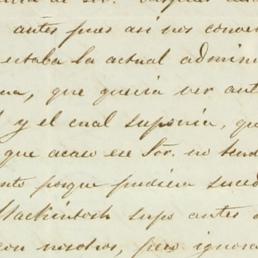 de Sor.
antes pues asi nos conven
estaba la actual admini
que queria ver ant
y el cual suponia, qu
que acaso ese Sor. no tend
porque pudiera suced
Mackintosh supo antes
con nosotros, pero ignora